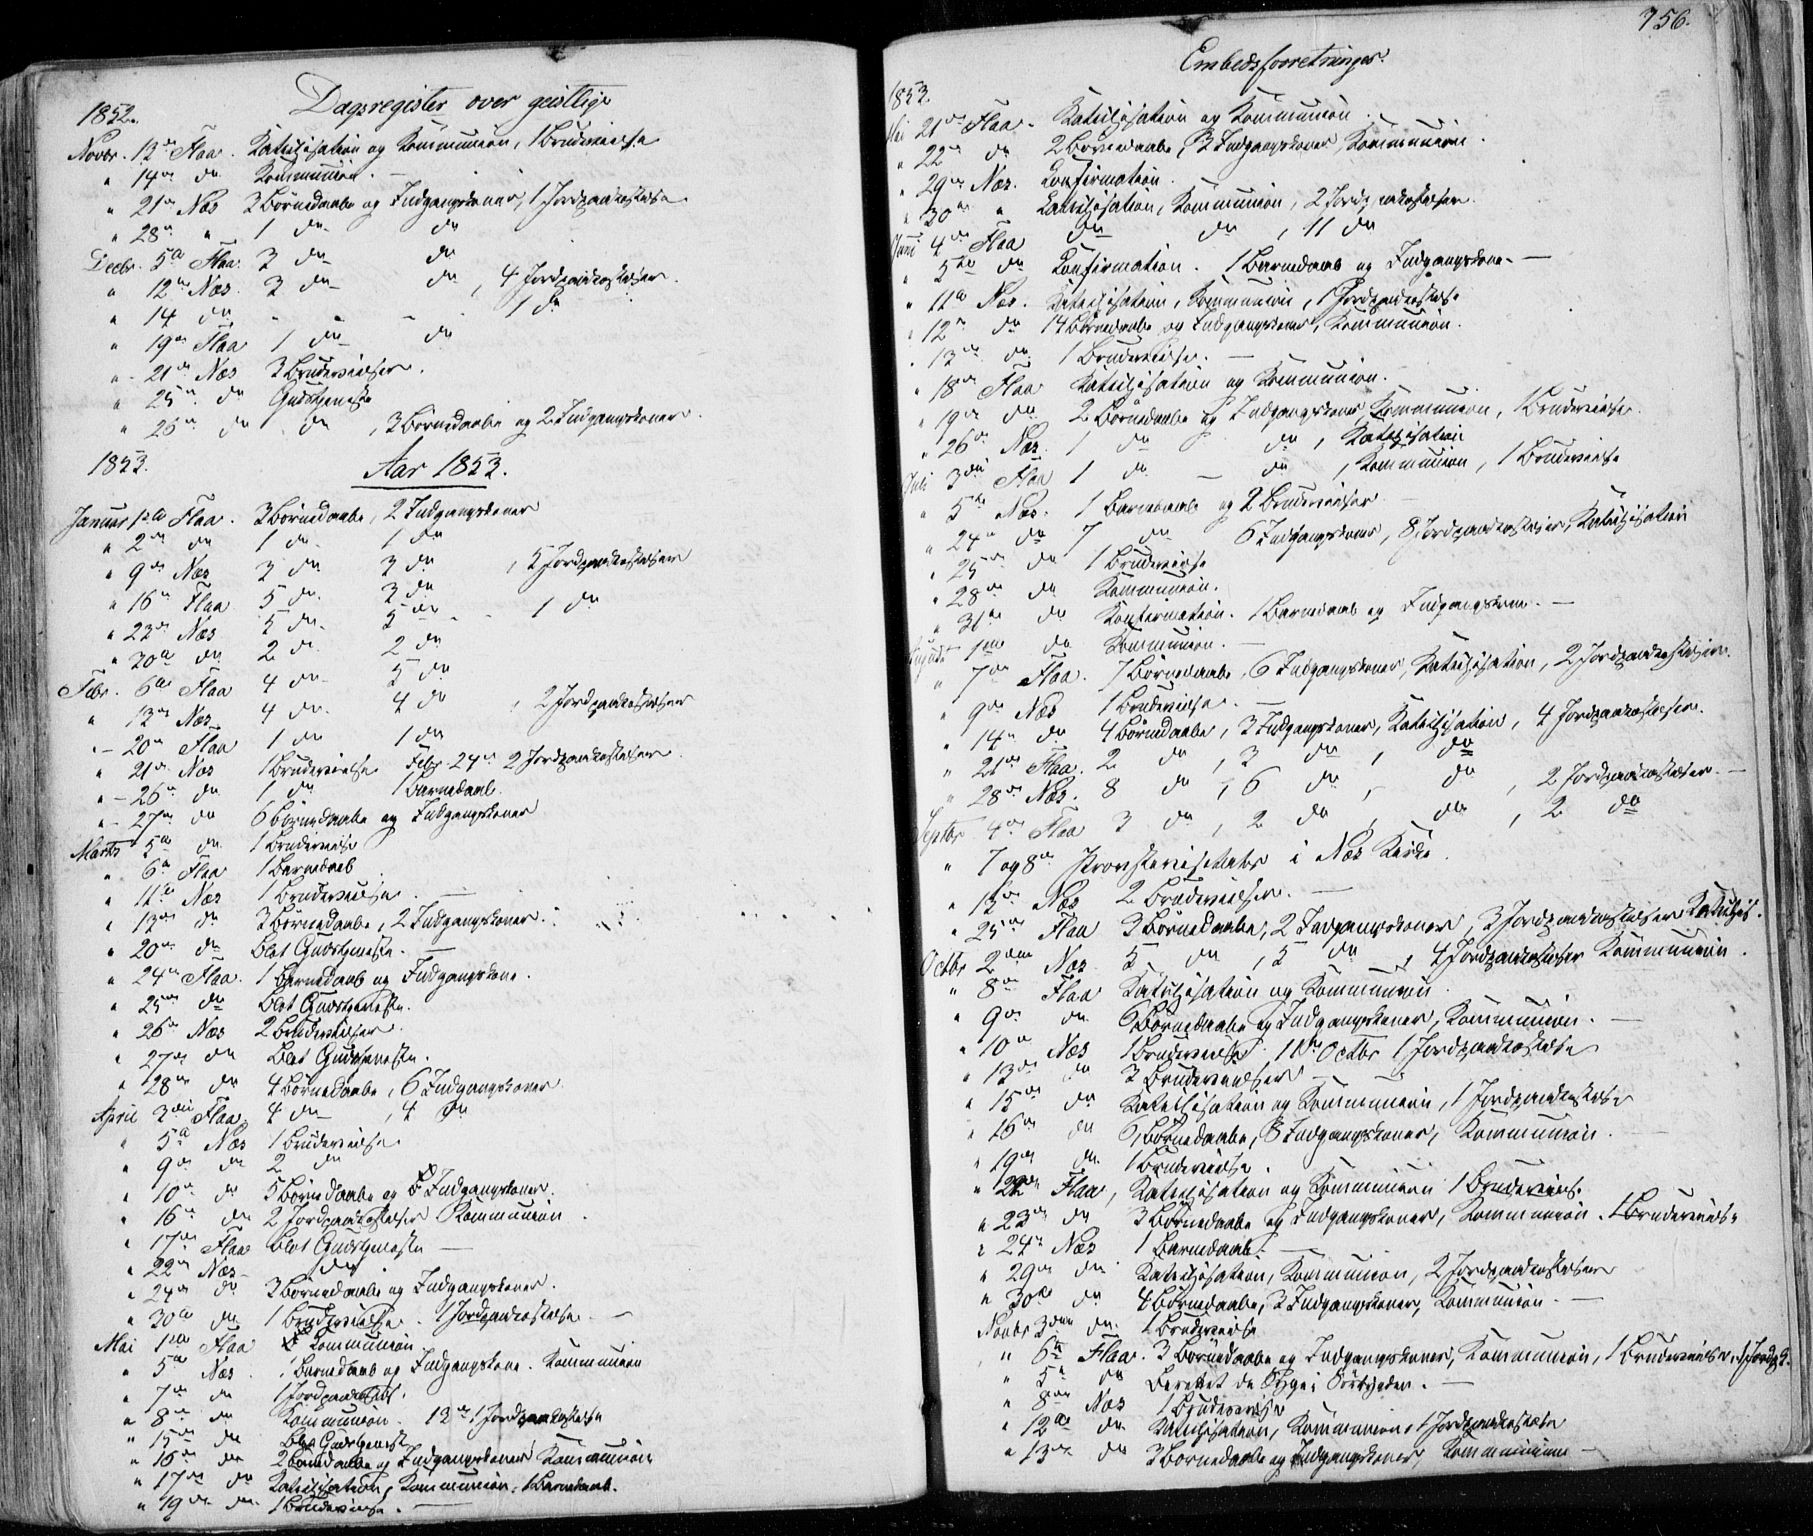 Dagsregister over geistlige
1852.
Novbr. 13de Flaa. Katechisation og Kommunion, 1 Brudevielse
" 14de do Kommunion. —
" 21de Næs 3 Børnedaabe og Indgangskoner, 1 Jordpaakastelse
" 28de " 1 do do
Decbr. 5te Flaa. 3 do do
" 12te Næs. 3 do do, 4 Jordpaakastelser.
" 14 do " " " 1 do
" 19de Flaa 1 do do
" 21de Næs 3 Brudevielser.
" 25de do Gudstjeneste
" 26de do do, 3 Børnedaabe og 2 Indgangskoner.
1853. Aar 1853.
Januar 1ste Flaa. 3 Børnedaabe, 2 Indgangskoner
" 2den do 1 do 1 do
" 9de Næs 3 do 3 do, 5 Jordpaakastelser
" 16de Flaa 5 do 3 do
" 23de Næs 5 do 5 do 1 do
" 30te do 2 do 2 do
Febr. 6te Flaa 4 do 5 do
" 13de Næs 4 do 4 do, 2 Jordpaakastelser
" 20de Flaa 1 do 1 do
" 21de Næs 1 Brudevielse Febr. 24de 2 Jordpaakastelser.
" 26de do 1 do 1 Barnedaab.
" 27de do 6 Børnedaabe og Indgangskoner
Marts 5te do 1 Brudevielse
" 6te Flaa 1 Barnedaab
" 11te Næs 1 Brudevielse. —
" 13de do 3 Børnedaabe, 2 Indgangskoner.
" 20de do Blot Gudstjeneste. —
" 24de Flaa. 1 Barnedaab og Indgangskone.
" 25de do Blot Gudstjeneste.
" 26de Næs 2 Brudevielser.
" 27de do Blot Gudstjeneste.
" 28de do 4 Børnedaabe, 6 Indgangskoner.
April 3die Flaa 4 do, 4 do
" 5te Næs 1 Brudevielse.
" 9de do 2 do
" 10de do 5 Børnedaabe og Indgangskoner.
" 16de do 2 Jordpaakastelser Kommunion.
" 17de Flaa Blot Gudstjeneste —
" 22de Næs do
" 24de do 3 Børnedaabe og Indgangskoner.
" 30te do 1 Brudevielse. 1 Jordpaakastelse. —
Mai 1ste Flaa Kommunion
" 5te Næs. 1 Barnedaab og Indgangskone. Kommunion
" 7de do 1 Jordpaakastelse.
" 8de do Kommunion. 13de 1 Jordpaakastelse
" 15de do Blot Gudstjeneste
" 16de do 2 Børnedaabe og Indgangskoner Kommunion
" 17de do Katechisation, Kommunion, 1 Barnedaab.
" 19de do 1 Brudevielse. —
756.
Embedsforretninger.
1853.
Mai 21de Flaa. Katechisation og Kommunion.
" 22de do 2 Børnedaabe, 3 Indgangskoner, Kommunion.
" 29de Næs. Confirmation.
" 30te " Katechisation, Kommunion, 2 Jordpaakastelser.
Juni 4de Flaa do do, 11 do
" 5te do Confirmation. 1 Barnedaab og Indgangskone. —
" 11te Næs. Katechisation, Kommunion, 1 Jordpaakastelse
" 12te do 14 Børnedaabe og Indgangskoner, Kommunion.
" 13de do 1 Brudevielse. —
" 18de Flaa Katechisation og Kommunion.
" 19de do 2 Børnedaabe og Indgangskoner, Kommunion, 1 Brudevielse.
" 26de Næs 1 do do, Katechisation
Juli 3die Flaa 1 do — do, Kommunion, 1 Brudevielse
" 5te Næs. 1 Barnedaab og 2 Brudevielser
" 24de do 7 do 6 Indgangskoner, 8 Jordpaakastelser, Katechisation
" 25de do 1 Brudevielse
" 28de do Kommunion.
" 31te do Confirmation. 1 Barnedaab og Indgangskone. —
August 1ste do Kommunion. —
" 7de Flaa. 7 Børnedaabe, 6 Indgangskoner, Katechisation, 2 Jordpaakastelser.
" 9de Næs 1 Brudevielse. —
" 14de do 4 Børnedaabe, 3 Indgangskoner, Katechisation, 4 Jordpaakastelser.
" 21de Flaa. 2 do, 3 do, do
" 28de Næs. 8 do, 6 do, do, 2 Jordpaakastelser. —
Septbr 4de Flaa 3 do, 2 do, do, 2 do
" 7 og 8de Provstevisitats i Næs Kirke.
" 13de Næs 2 Brudevielser. —
" 25de Flaa 3 Børnedaabe, 2 Indgangskoner, 3 Jordpaakastelser Katechis.
Octbr 2den Næs 5 do, 5 do, 4 Jordpaakastelser Kommunion.
" 8de Flaa Katechisation og Kommunion.
" 9de do 6 Børnedaabe og Indgangskoner, Kommunion. —
" 10de Næs 1 Brudevielse. 11te Octbr 1 Jordpaakastelse
" 13de do 3 Brudevielser —
" 15de do Katechisation og Kommunion, 1 Jordpaakastelse
" 16de do 6 Børnedaabe, 8 Indgangskoner, Kommunion. —
" 19de do 1 Brudevielse.
" 22de Flaa, Katechisation og Kommunion 1 Brudevielse.
" 23de do 3 Børnedaabe og Indgangskoner, Kommunion. 1 Brudevielse
" 24de Næs 1 Barnedaab. —
" 29de do Katechisation, Kommunion, 2 Jordpaakastelser
" 30te do 4 Børnedaabe, 3 Indgangskoner, Kommunion. —
Novbr 3die do. 1 Brudevielse
" 6te Flaa. 3 Børnedaabe og Indgangskoner, Kommunion, 1 Brudevielse, 1 Jordpk.
" 5te do Berettet de Syge i
" 8de Næs 1 Brudevielse
" 12te do Katechisation, Kommunion, 1 Jordpaakastelse
" 13de do 3 Børnedaabe og Indgangskoner, Kommunion —